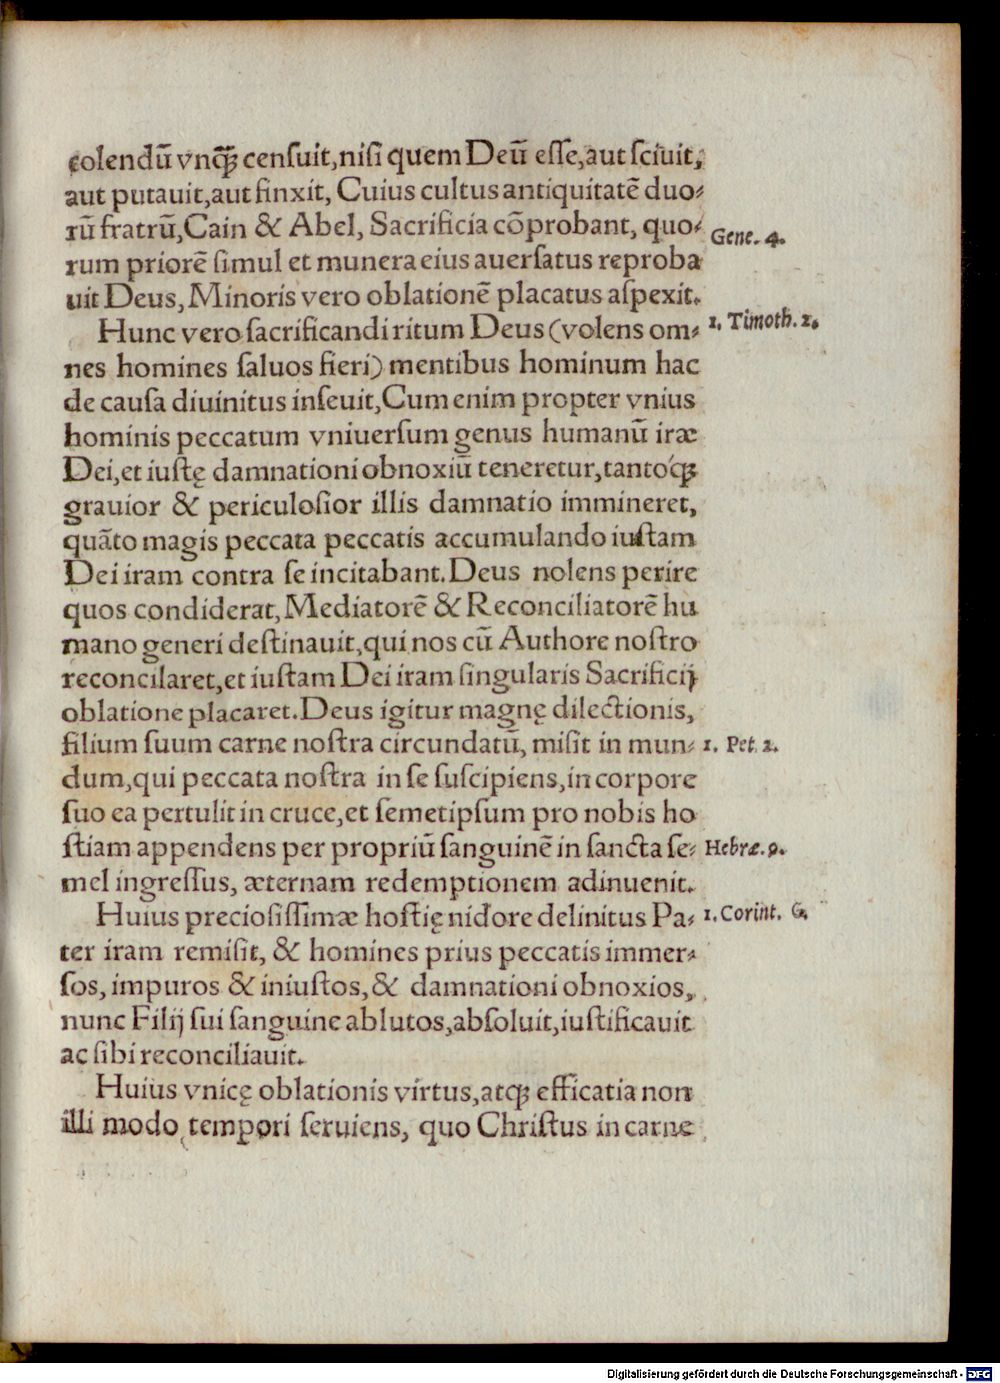 colendū vnq̄ꝫ cenſuit,niſi quem Deū eſſe,aut ſciuit,
aut putauit,aut finxit, Cuius cultus antiquitatē duo⸗
rū fratrū,Cain & Abel, Sacrificia cōprobant, quo⸗
Gene. 4.
rum priorē ſimul et munera eius auerſatus reproba
uit Deus, Minoris vero oblationē placatus aſpexit.
Hunc vero ſacrificandi ritum Deus (volens om⸗
1. Timoth. 2.
nes homines ſaluos fieri) mentibus hominum hac
de cauſa diuinitus inſeuit,Cum enim propter vnius
hominis peccatum vniuerſum genus humanū iræ
Dei,et iuſtę damnationi obnoxiū teneretur,tantoqꝫ
grauior & periculoſior illis damnatio immineret,
quāto magis peccata peccatis accumulando iuſtam
Dei iram contra ſe incitabant.Deus nolens perire
quos condiderat,Mediatorē & Reconciliatorē hu
mano generi deſtinauit,qui nos cū Authore noſtro
reconcilaret,et iuſtam Dei iram ſingularis Sacrificij
oblatione placaret.Deus igitur magnę dilectionis,
filium ſuum carne noſtra circundatū, miſit in mun⸗
1. Pet. 2.
dum,qui peccata noſtra in ſe ſuſcipiens,in corpore
ſuo ea pertulit in cruce,et ſemetipſum pro nobis ho
ſtiam appendens per propriū ſanguinē in ſancta ſe⸗
Hebræ. 9.
mel ingreſſus, æternam redemptionem adinuenit.
Huius precioſiſſimæ hoſtię nidore delinitus Pa⸗
1. Corint. 6.
ter iram remiſit, & homines prius peccatis immer⸗
ſos, impuros & iniuſtos,& damnationi obnoxios,
nunc Filij ſui ſanguine ablutos,abſoluit,iuſtificauit
ac ſibi reconciliauit.
Huius vnicę oblationis virtus,atqꝫ efficatia non
illi modo tempori ſeruiens, quo Chriſtus in carne
Digitalisierung gefördert durch die Deutsche Forschungsgemeinschaft - DFG